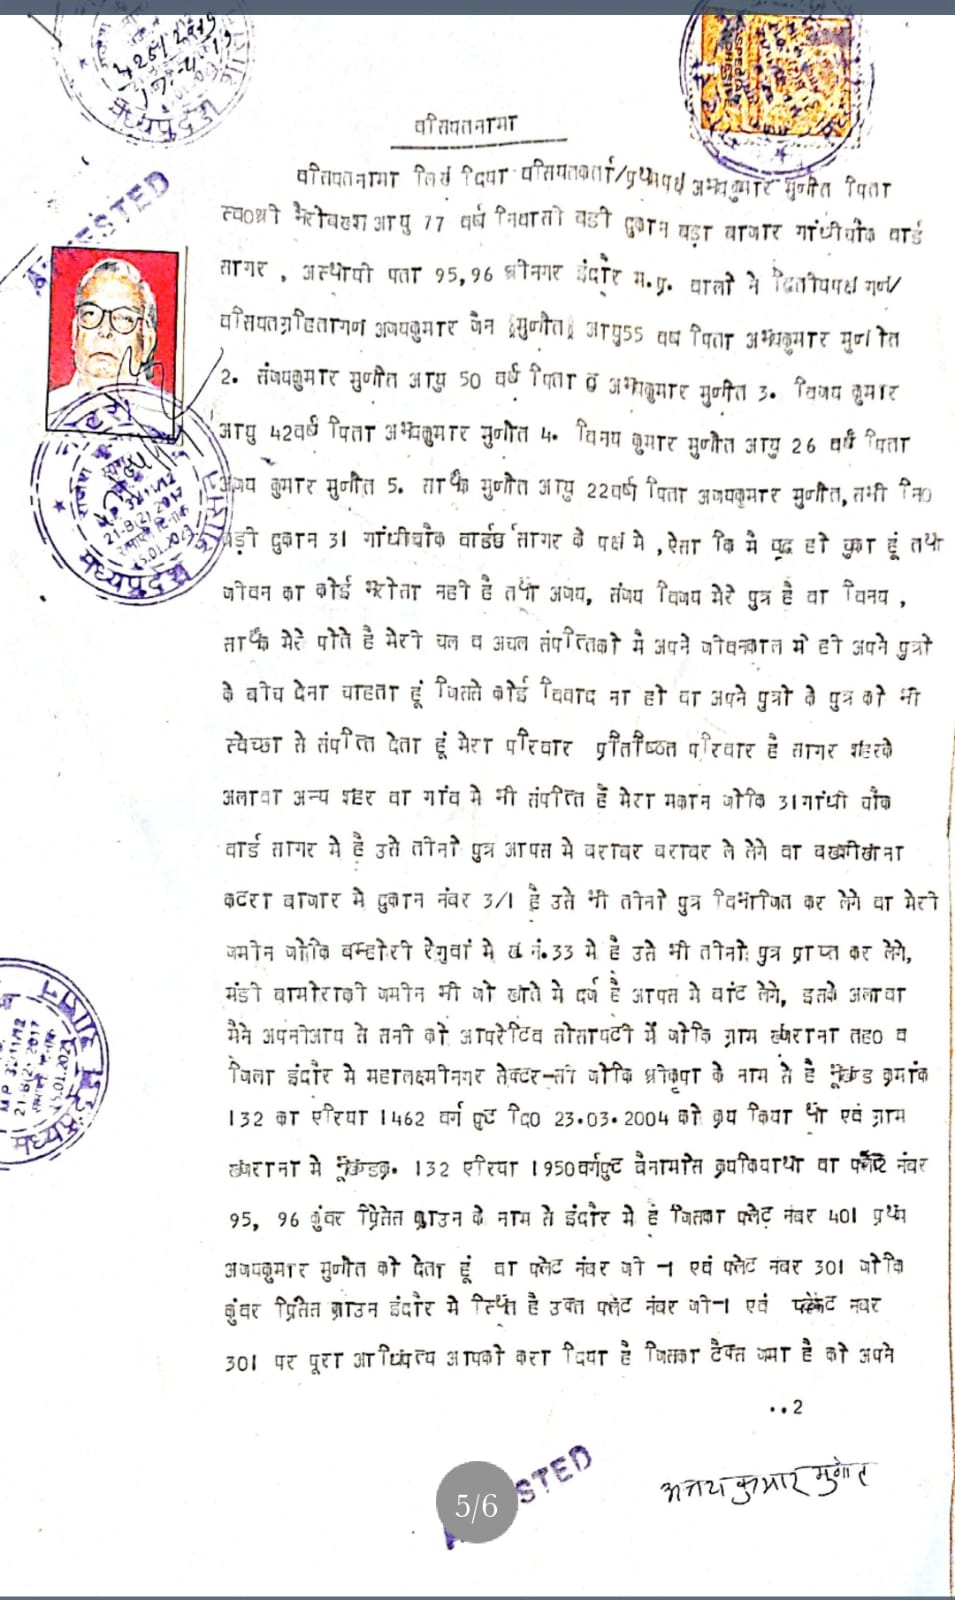 वसियतनामा
वसियतनामा लिख दिया वसियतकर्ता/प्रथमपक्ष अभयकुमार मुणोत पिता
स्व०श्री भैरोबख्श आयु 77 वर्ष निवासी बडी दुकान बड़ा बाजार गांधीचौक वार्ड
सागर , अस्थायी पता 95,96 श्रीनगर इंदौर म.प्र. वालो ने द्वितीयपक्ष गण/
वसियतग्रहितागण अजयकुमार जैन [मुणोत] आयु55 वर्ष पिता अभयकुमार मुणोत
2. संजयकुमार मुणोत आयु 50 वर्ष पिता अभयकुमार मुणोत 3. विजय कुमार
आयु 42वर्ष पिता अभयकुमार मुणोत 4. विनय कुमार मुणोत आयु 26 वर्ष पिता
अजय कुमार मुणोत 5. सार्थक मुणोत आयु 22वर्ष पिता अजयकुमार मुणोत,सभी नि०
बड़ी दुकान 31 गांधीचौक वार्ड सागर के पक्ष मे ,ऐसा कि मै वृद्ध हो चुका हूं तथा
जीवन का कोई भरोसा नही है तथा अजय, संजय विजय मेरे पुत्र है वा विनय ,
सार्थक मेरे पोते है मेरी चल व अचल संपत्तिको मै अपने जीवनकाल मे ही अपने पुत्रो
के बीच देना चाहता हूं जिससे कोई विवाद ना हो वा अपने पुत्रो के पुत्र को भी
स्वेच्छा से संपत्ति देता हूं मेरा परिवार प्रतिष्ठित परिवार है सागर शहरके
अलावा अन्य शहर वा गांव मे भी संपत्ति है मेरा मकान जोकि 31गांधी चौक
वार्ड सागर मे है उसे तीनो पुत्र आपस मे बराबर बराबर ले लेगे वा बख्शीखाना
कटरा बाजार मे दुकान नंबर 3/1 है उसे भी तीनो पुत्र विभाजित कर लेगे वा मेरी
जमीन जोकि बम्होरी रेगुवां मे ख नं.33 मे है उसे भी तीनो पुत्र प्राप्त कर लेगे,
मंडी बामोराकी जमीन भी जो खाते मे दर्ज है आपस मे बांट लेगे, इसके अलावा
मैने अपनीआय से सनी को आपरेटिव सोसायटी में जोकि ग्राम खजराना तह० व
जिला इंदौर मे महालक्ष्मीनगर सेक्टर-सी जोकि श्रीकृपा के नाम से है भूखंड क्रमांक
132 का एरिया 1462 वर्ग फुट दि० 23.03.2004 को क्रय किया था एवं ग्राम
खजराना मे भूखंडक्र. 132 एरिया 1950वर्गफुट बैनामासे क्रयकियाथा वा फ्लैट नंबर
95, 96 कुंवर प्रिसेस क्राउन के नाम से इंदौर मे है जिसका फ्लेट नंबर 401 प्रथम
अजयकुमार मुणोत को देता हूं वा फ्लेट नंबर जी -1 एवं फ्लेट नंबर 301 जोकि
कुंवर प्रिसेस क्राउन इंदौर मे स्थित है उक्त फ्लेट नंबर जी-1 एवं फ्लेट नंबर
301 पर पूरा आधिपत्य आपको करा दिया है जिसका टैक्स जमा है को अपने
..2
अभय कुमार मुणोत
5/6
ATTESTED